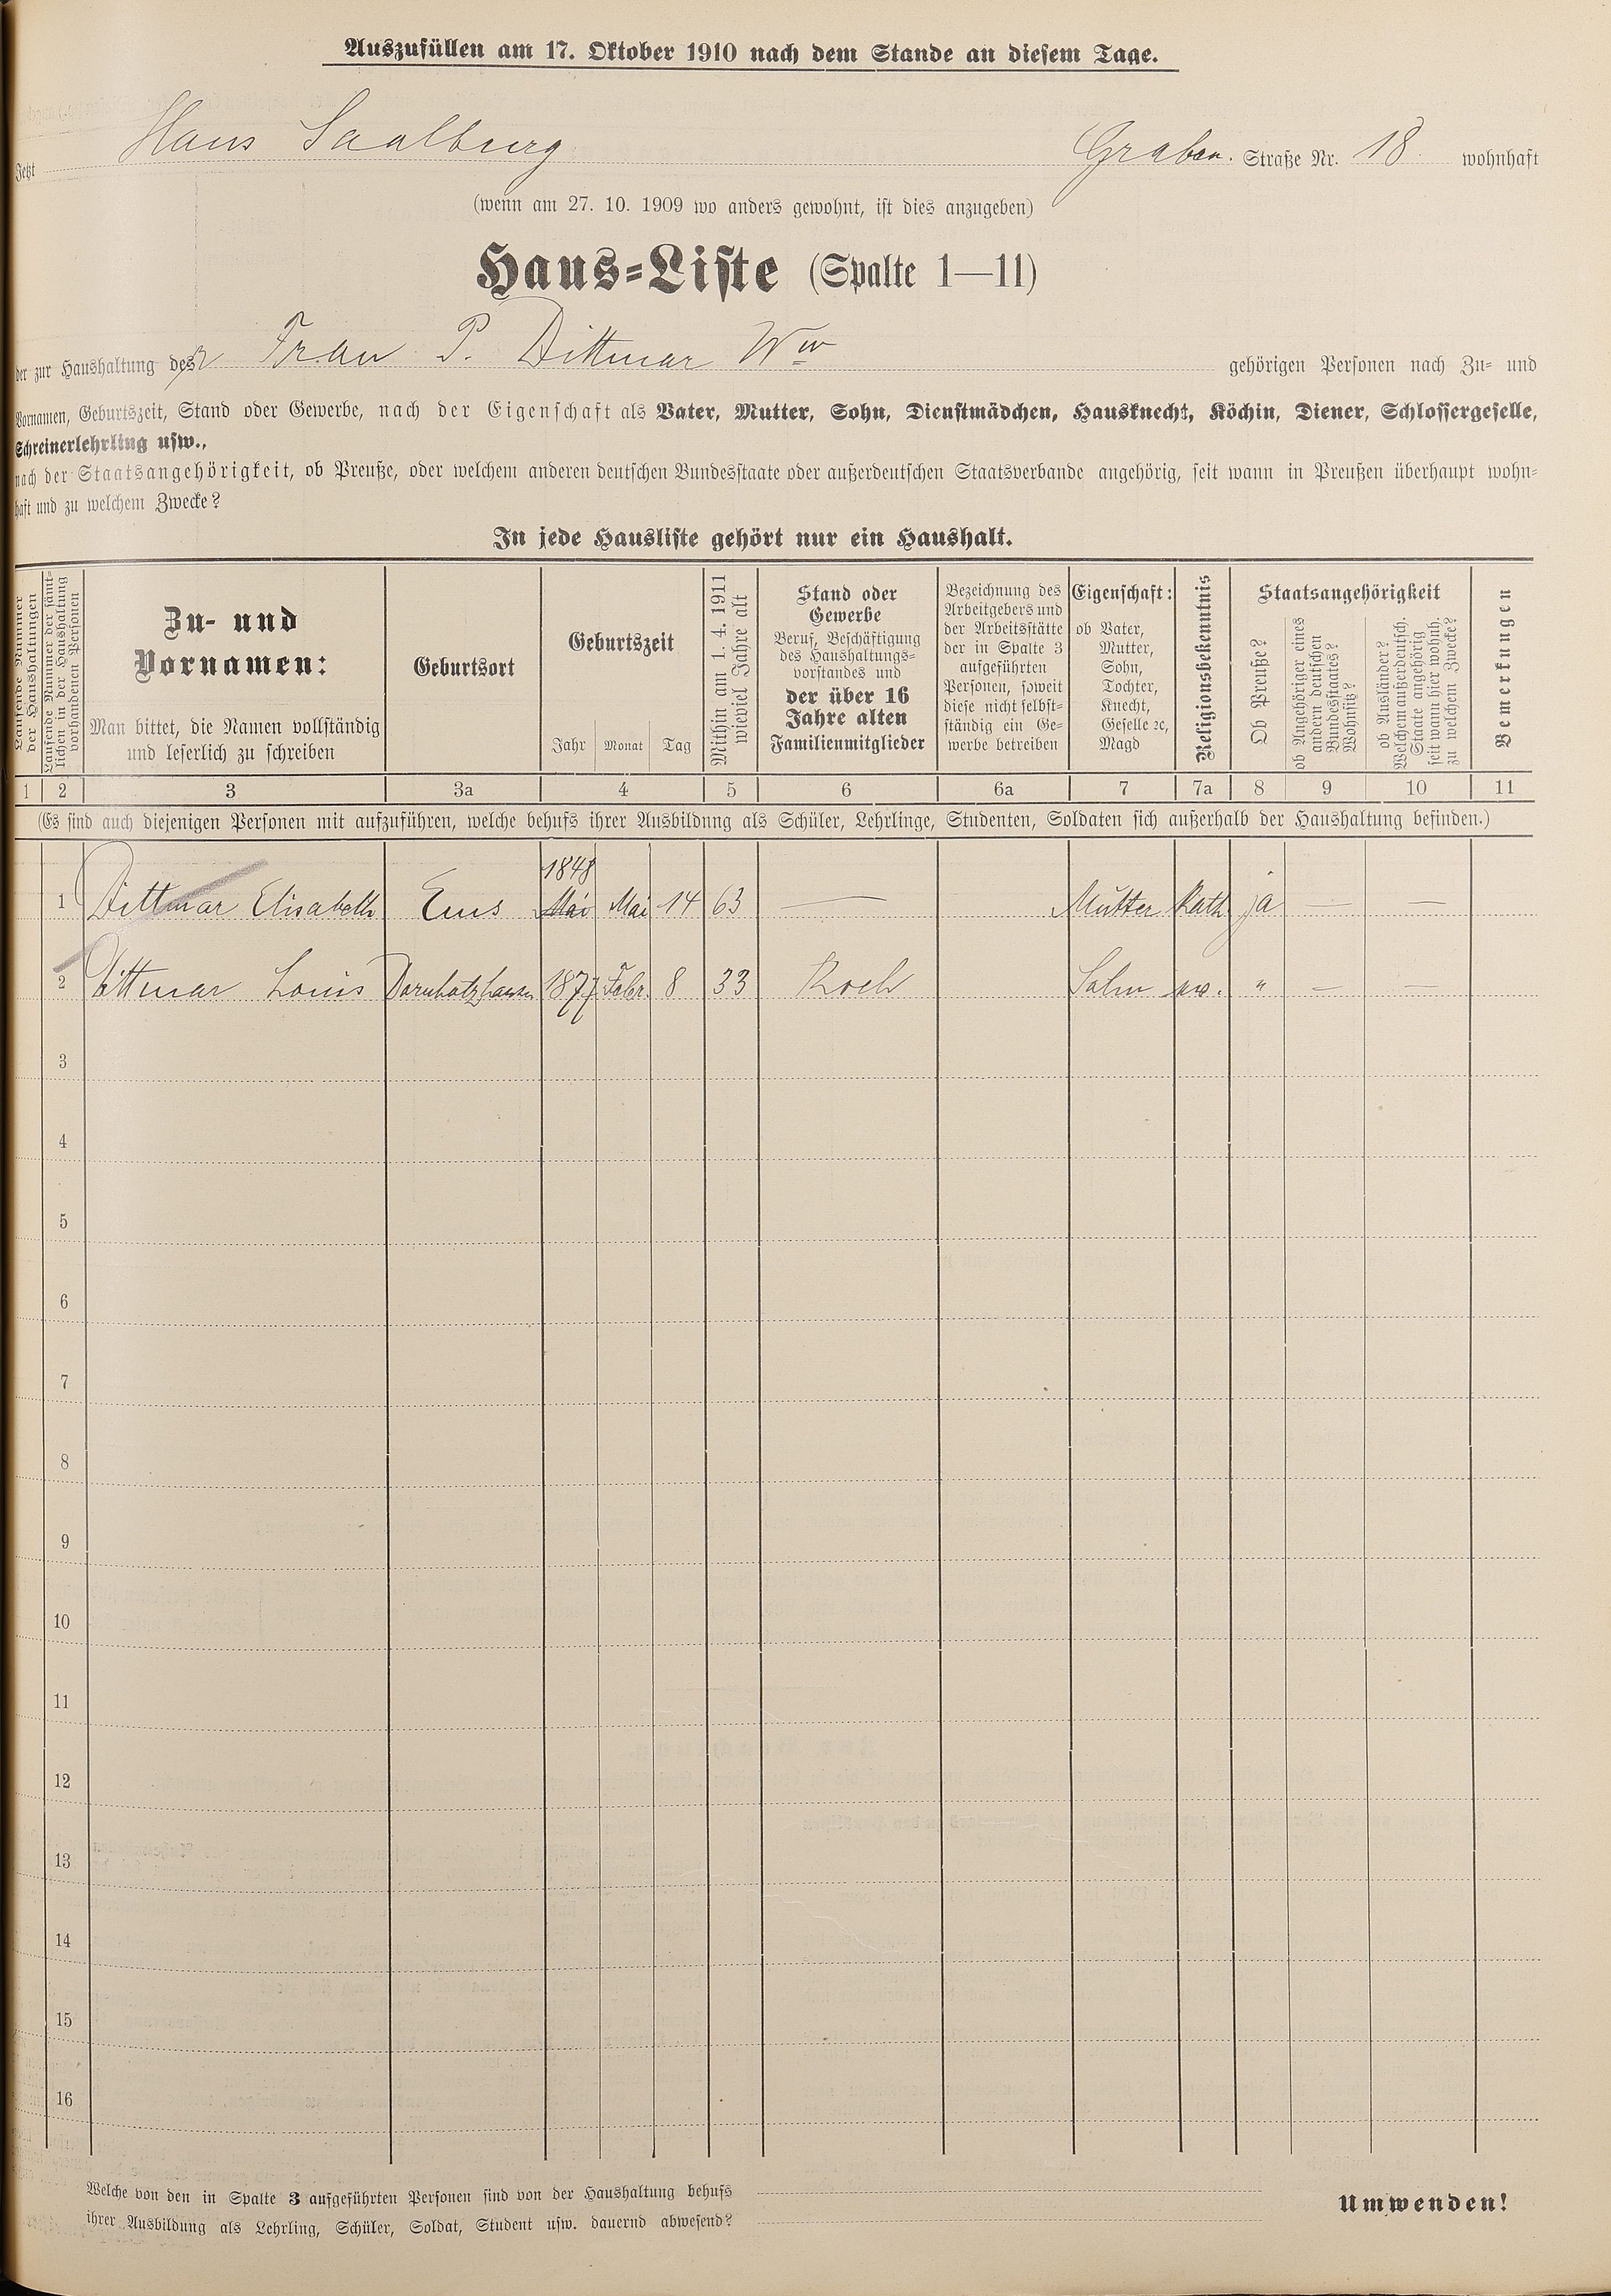 Auszufüllen am 17. Oktober 1910 nach dem Stande an diesem Tage.
Jetzt Haus Saalburg Graben. Straße Nr. 18 wohnhaft
(wenn am 27. 10. 1909 wo anders gewohnt, ist dies anzugeben)
Haus=Liste (Spalte 1—11)
der zur Haushaltung der Frau P. Dittmar Ww gehörigen Personen nach Zu= und
Vornamen, Geburtszeit, Stand oder Gewerbe, nach der Eigenschaft als Vater, Mutter, Sohn, Dienstmädchen, Hausknecht, Köchin, Diener, Schlossergeselle,
Schreinerlehrling usw.,
nach der Staatsangehörigkeit, ob Preuße, oder welchem anderen deutschen Bundesstaate oder außerdeutschen Staatsverbande angehörig, seit wann in Preußen überhaupt wohn=
haft und zu welchem Zwecke?
In jede Hausliste gehört nur ein Haushalt.
Laufende Nummer
der Haushaltungen
Laufende Nummer der sämt=
lichen in der Haushaltung
vorhandenen Personen
Zu- und
Vornamen:
Man bittet, die Namen vollständig
und leserlich zu schreiben
Geburtsort
Geburtszeit
Jahr Monat Tag
Mithin am 1. 4. 1911
wieviel Jahre alt
Stand oder
Gewerbe
Beruf, Beschäftigung
des Haushaltungs=
vorstandes und
der über 16
Jahre alten
Familienmitglieder
Bezeichnung des
Arbeitgebers und
der Arbeitsstätte
der in Spalte 3
aufgeführten
Personen, soweit
diese nicht selbst=
ständig ein Ge=
werbe betreiben
Eigenschaft:
ob Vater,
Mutter,
Sohn,
Tochter,
Knecht,
Geselle ꝛc,
Magd
Religionsbekenntnis
Staatsangehörigkeit
Ob Preuße?
ob Angehöriger eines
andern deutschen
Bundesstaates?
Wohnsitz?
ob Ausländer?
Welchem außerdeutsch.
Staate angehörig
seit wann hier wohnh.
zu welchem Zwecke?
Bemerkungen
1 2 3 3a 4 5 6 6a 7 7a 8 9 10 11
(Es sind auch diejenigen Personen mit aufzuführen, welche behufs ihrer Ausbildung als Schüler, Lehrlinge, Studenten, Soldaten sich außerhalb der Haushaltung befinden.)
1848
1 Dittmar Elisabeth Ems Mai Mai 14 63 — Mutter Kath. ja — —
2 Dittmar Louis Dornholzhausen 1877 Febr. 8 33 Koch Sohn " — —
3
4
5
6
7
8
9
10
11
12
13
14
15
16
Welche von den in Spalte 3 aufgeführten Personen sind von der Haushaltung behufs
ihrer Ausbildung als Lehrling, Schüler, Soldat, Student usw. dauernd abwesend?
Umwenden!